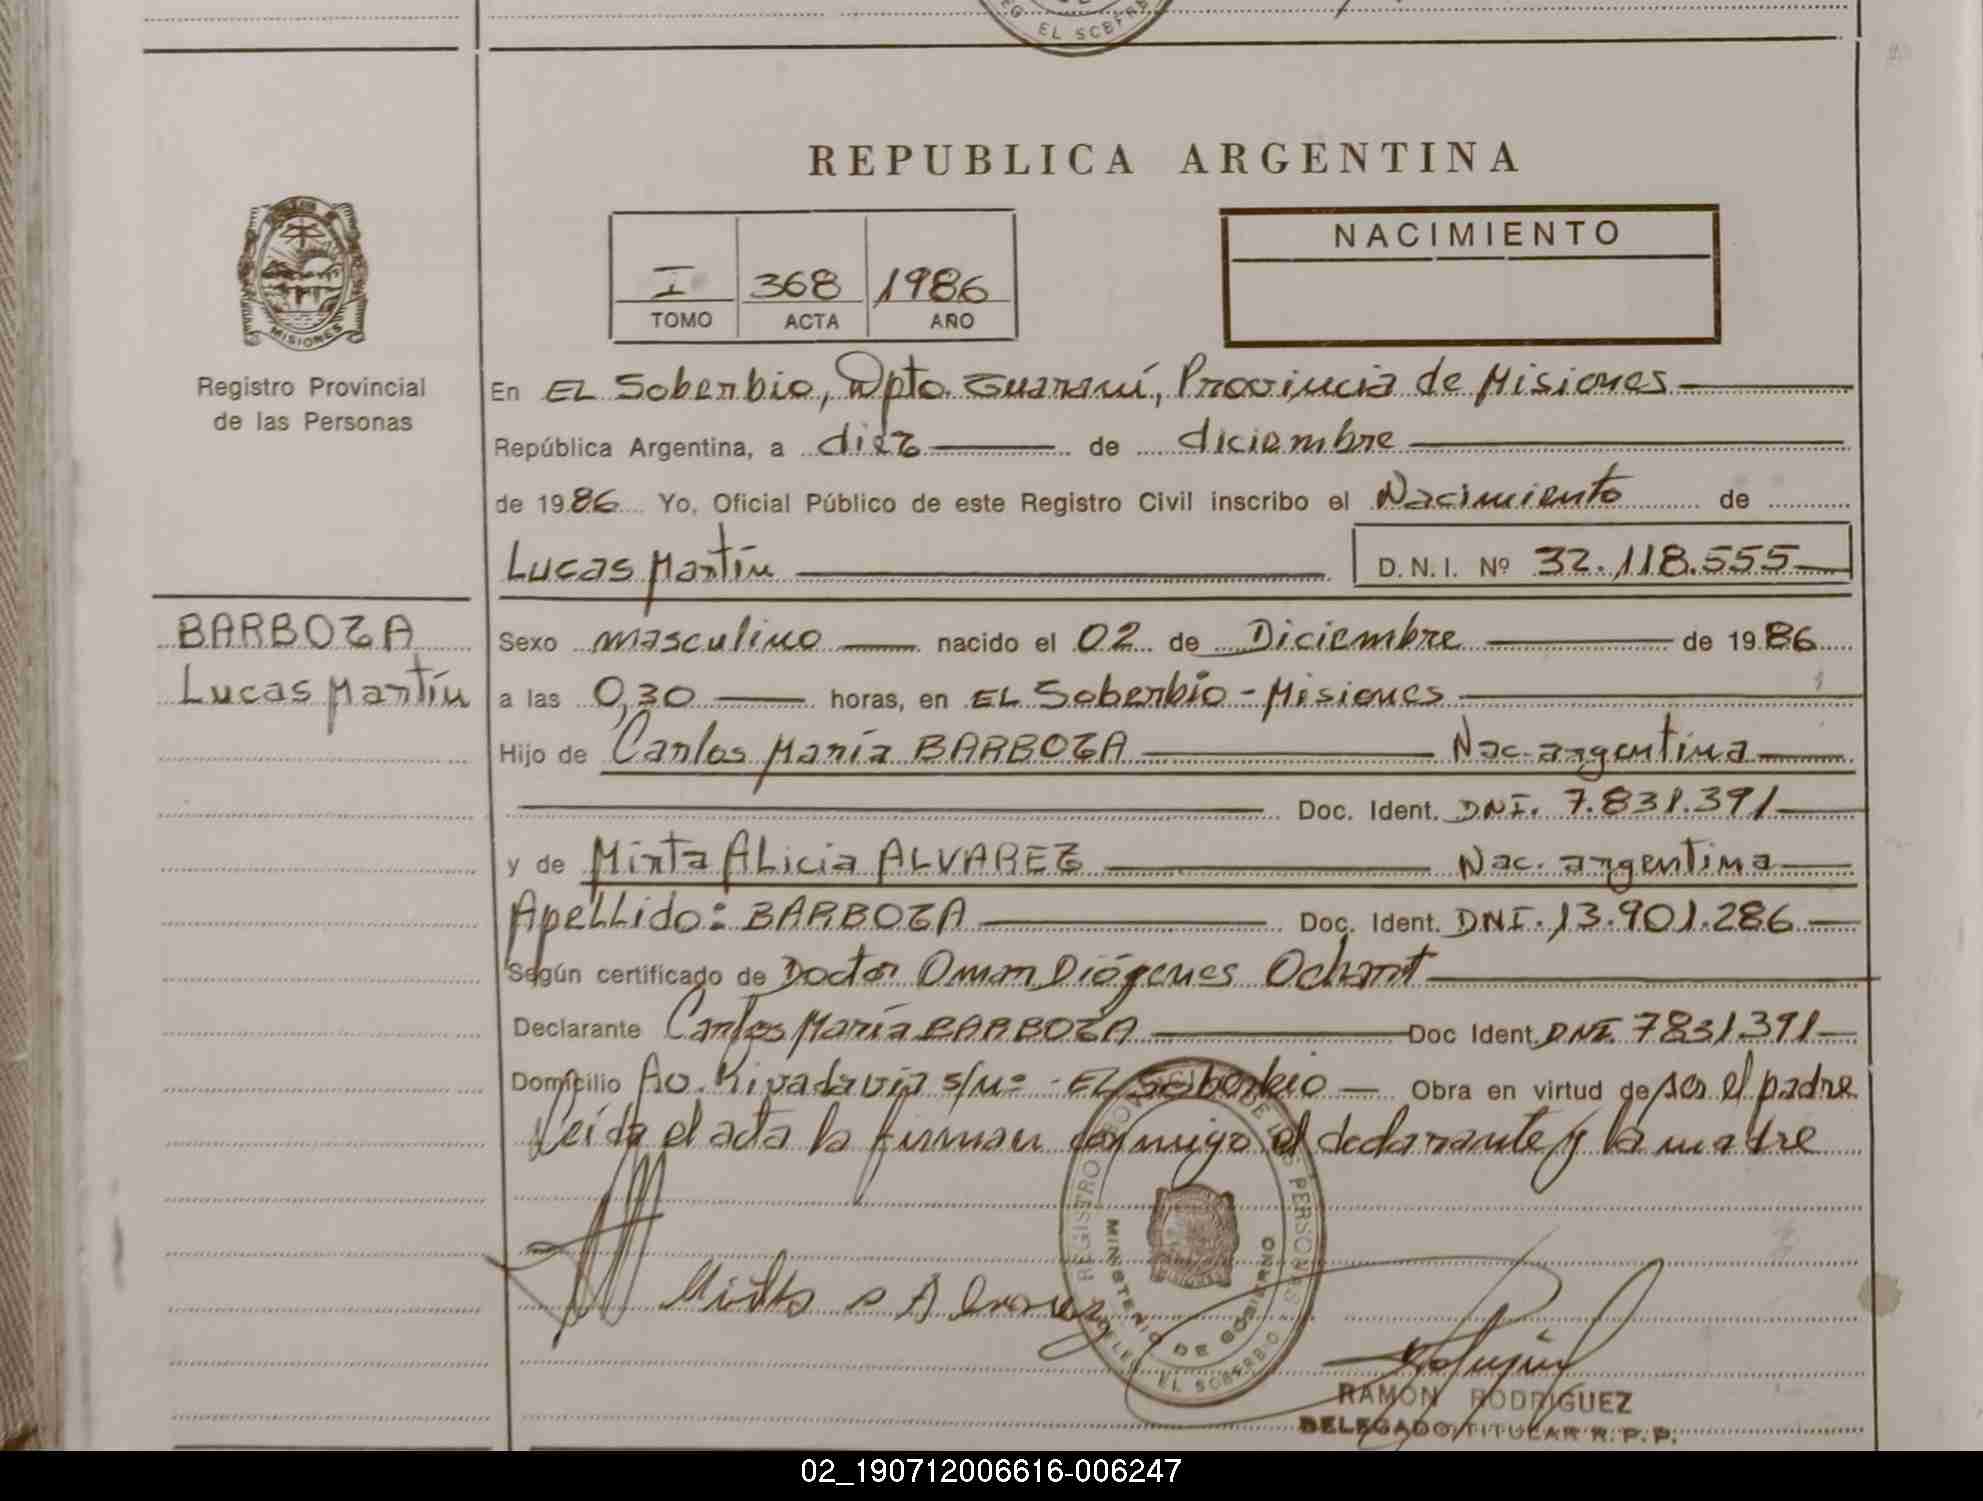 EL SOBERB
REPUBLICA ARGENTINA
I 368 1986
TOMO ACTA AÑO
NACIMIENTO
MISIONES
Registro Provincial
de las Personas
En EL Soberbio, Dpto. Guaraní, Provincia de Misiones
República Argentina, a diez de diciembre
de 1986 Yo, Oficial Público de este Registro Civil inscribo el Nacimiento de
Lucas Martín D.N.I. Nº 32.118.555
BARBOZA
Lucas Martín
Sexo masculino nacido el 02 de Diciembre de 1986
a las 0,30 horas, en EL Soberbio - Misiones
Hijo de Carlos María BARBOZA Nac. argentina
Doc. Ident. DNI. 7.831.391
y de Mirta ALicia ALVAREZ Nac. argentina
ApeLLido: BARBOZA Doc. Ident. DNI. 13.901.286
Según certificado de Doctor Omar Diógenes Ochart
Declarante Carlos María BARBOZA Doc Ident. DNI. 7831391
Domicilio Av. Rivadavia s/nº - EL Soberbio Obra en virtud de ser el padre
Leída el acta la firman conmigo el declarante y la madre
REGISTRO DE LAS PERSONAS
MINISTERIO DE GOBIERNO
EL SOBERBIO
RAMON RODRIGUEZ
DELEGADO TITULAR R.P.P.
02_190712006616-006247